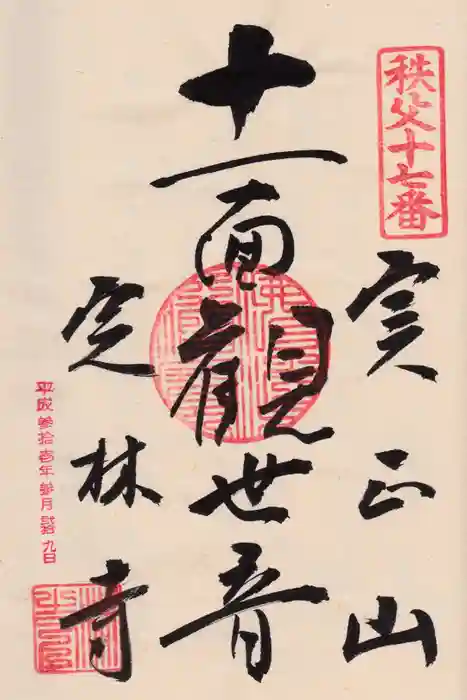 秩父十七番
実正山
十一面観世音
定林寺
平成参拾壱年参月 九日